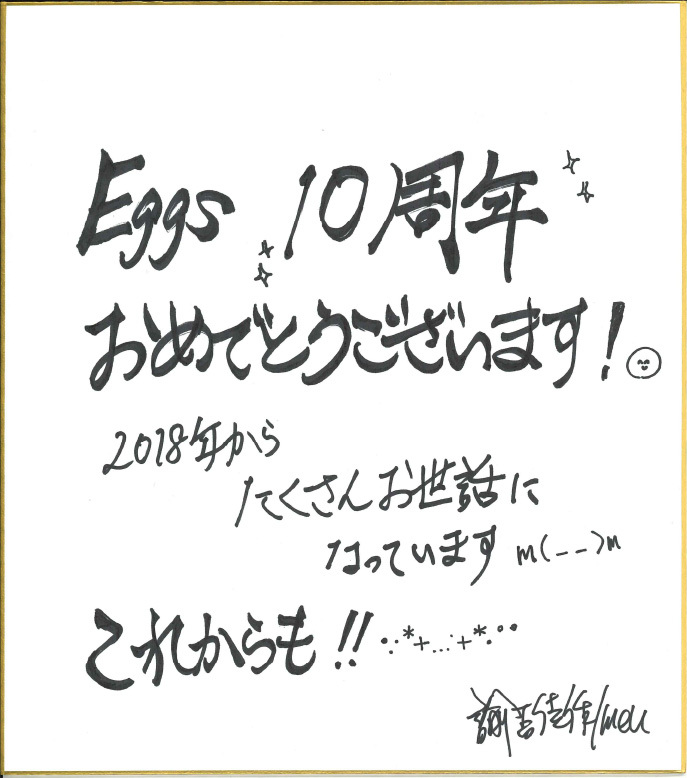 Eggs 10周年
おめでとうございます!
2018年から
たくさんお世話に
なっています m(__)m
これからも!! ∴*+…∴+*∵°°
諭吉佳作/men